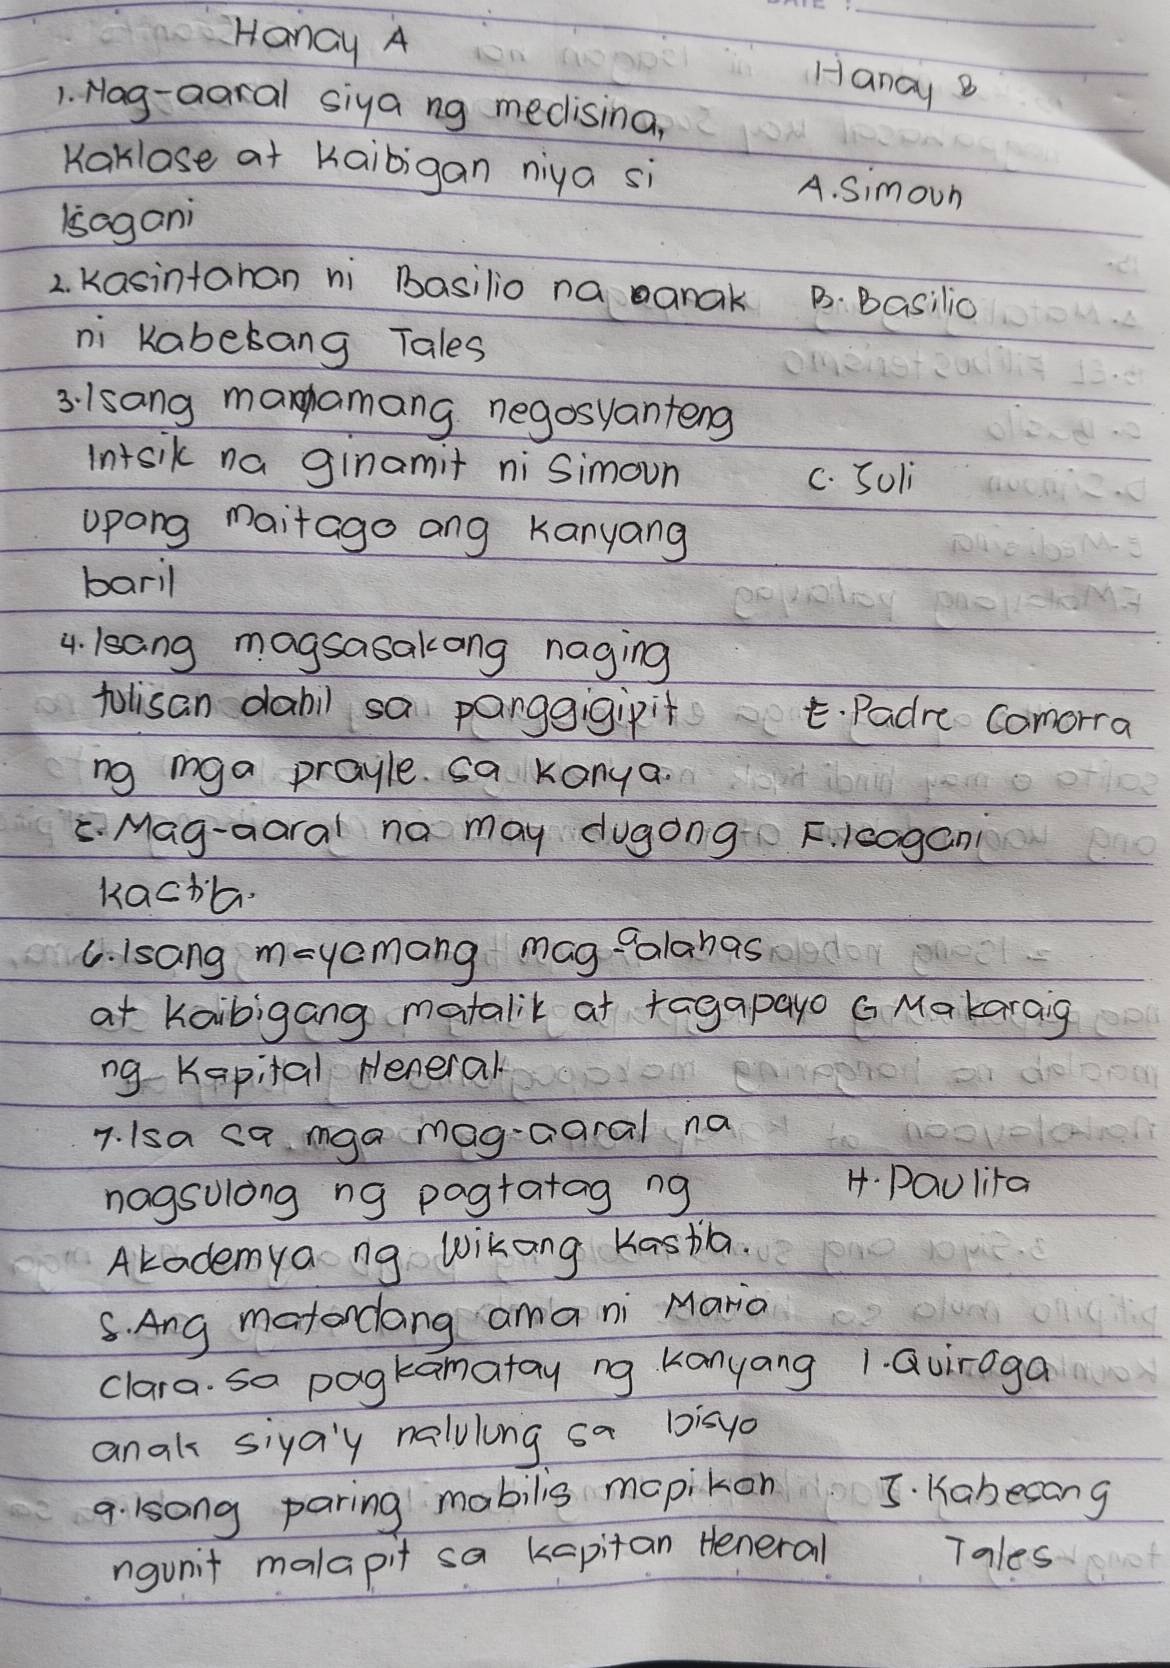 Hanay A
Hanay B
1. Mag-aaral siya ng medisina,
Kaklase at Kaibigan niya si
Isagani
A. Simoun
2. Kasintahan ni Basilio na anak
ni Kabesang Tales
B. Basilio
3. Isang mayamang negosyanteng
Intsik na ginamit ni Simoun
upang maitago ang Kanyang
baril
C. Juli
4. Isang magsasakang naging
tulisan dahil sa panggigipit
ng mga prayle. sa kanya.
E. Padre Camorra
5. Mag-aaral na may dugong
kastila.
F. Isagani
6. Isang mayamang mag-aalahas
at kaibigang matalik at tagapayo
ng Kapital Heneral
G Makaraig
7. Isa sa mga mag-aaral na
nagsulong ng pagtatag ng
Akademya ng Wikang Kastila.
H. Paulita
8. Ang matandang ama ni Maria
Clara. Sa pagkamatay ng kanyang
anak siya'y nalulung sa bisyo
I. Quiroga
9. Isang paring mabilis mapikon
ngunit malapit sa kapitan Heneral
J. Kabesang
Tales